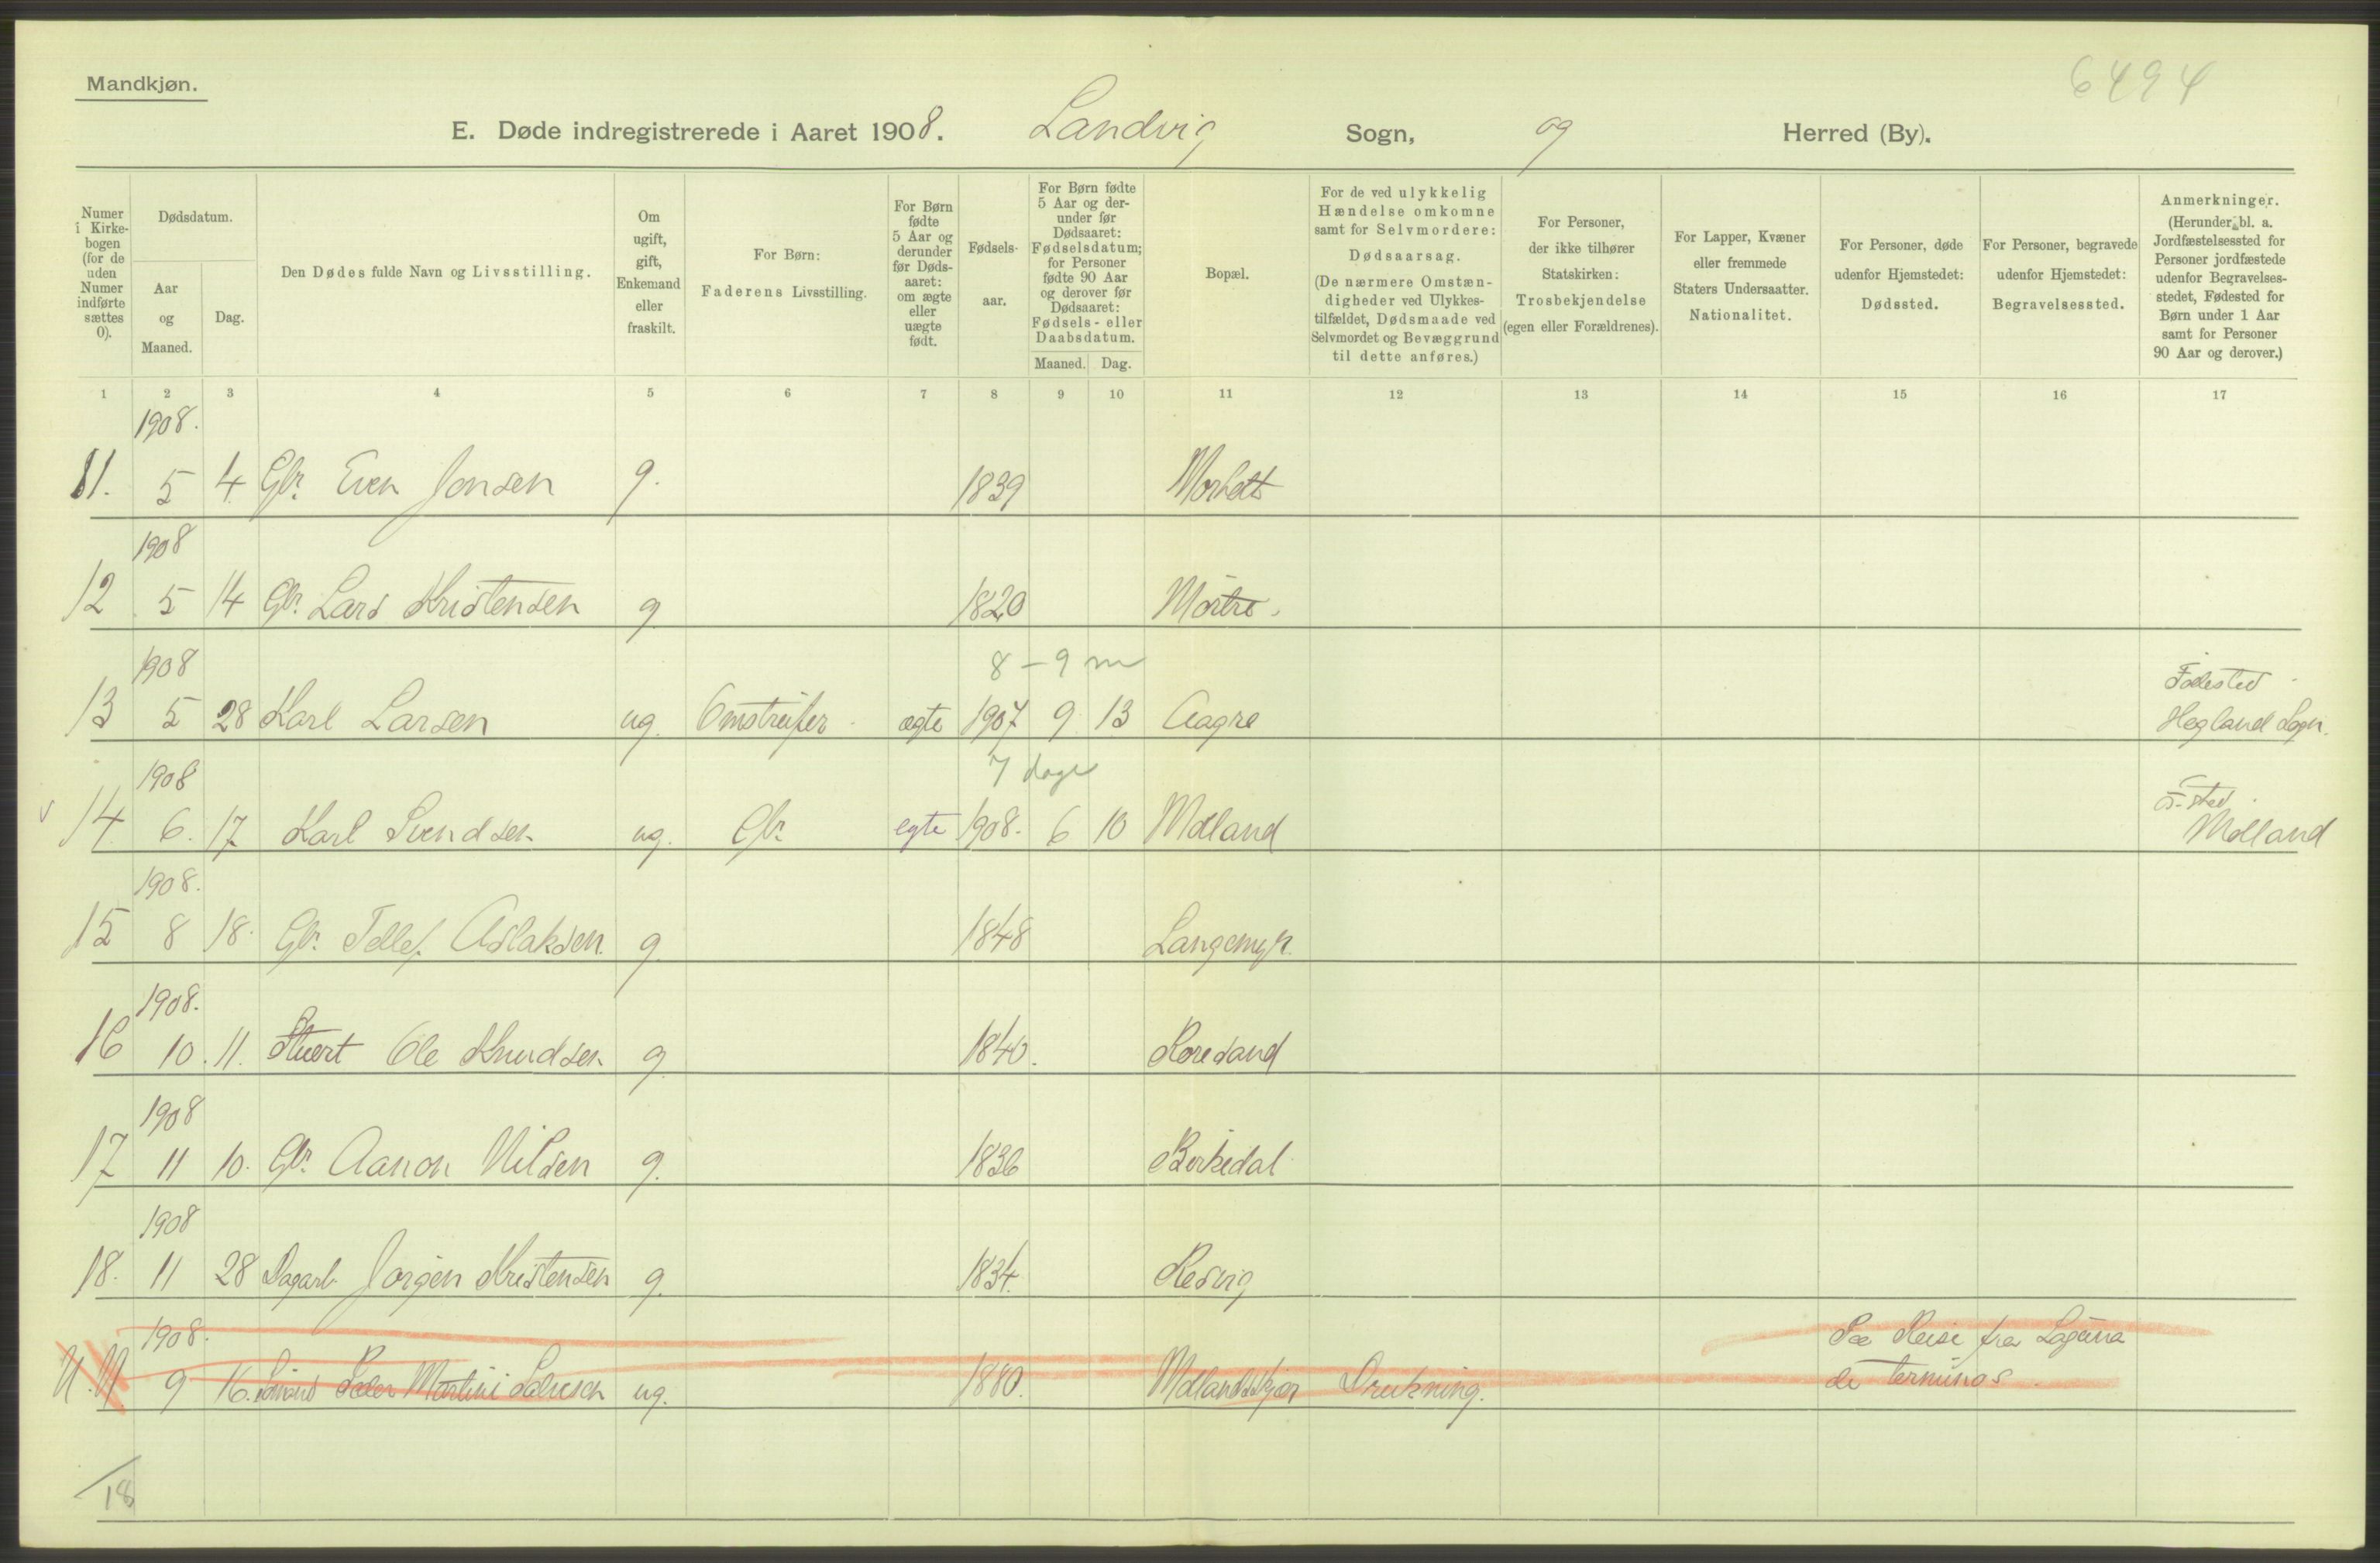 Mandkjøn.
6494
E. Døde indregistrerede i Aaret 1908. Landvig Sogn, og Herred (By).
Numer i Kirkebogen (for de uden Numer indførte sættes 0).
Dødsdatum.
Aar og Maaned.
Dag.
Den Dødes fulde Navn og Livsstilling.
Om ugift, gift, Enkemand eller fraskilt.
For Børn: Faderens Livsstilling.
For Børn fødte 5 Aar og derunder før Dødsaaret: om ægte eller uægte født.
Fødselsaar.
For Børn fødte 5 Aar og derunder før Dødsaaret: Fødselsdatum; for Personer fødte 90 Aar og derover før Dødsaaret: Fødsels- eller Daabsdatum.
Maaned. Dag.
Bopæl.
For de ved ulykkelig Hændelse omkomne samt for Selvmordere: Dødsaarsag. (De nærmere Omstændigheder ved Ulykkestilfældet, Dødsmaade ved Selvmordet og Bevæggrund til dette anføres.)
For Personer, der ikke tilhører Statskirken: Trosbekjendelse (egen eller Forældrenes).
For Lapper, Kvæner eller fremmede Staters Undersaatter. Nationalitet.
For Personer, døde udenfor Hjemstedet: Dødssted.
For Personer, begravede udenfor Hjemstedet: Begravelsessted.
Anmerkninger. (Herunder bl. a. Jordfæstelsessted for Personer jordfæstede udenfor Begravelsesstedet, Fødested for Børn under 1 Aar samt for Personer 90 Aar og derover.)
1 2 3 4 5 6 7 8 9 10 11 12 13 14 15 16 17
1908.
11. 5 4 Gbr. Even Jonsen g. 1839 Morholt
1908
12 5 14 Gbr. Lars Kristensen g 1820
1908 8-9 m Fødested
13 5 28 Karl Larsen ug. Omstreifer ægte 1907 9 13 Aagre Hegland Sogn.
1908 7 dage F-sted
14 6. 17 Karl Svendsen ug. Gbr. egte 1908. 6 10 Molland Molland
1908.
15 8 18. Gbr. Tellef Aslaksen. g. 1848 Langemyr.
1908.
16 10. 11. Ole Knudsen g 1840. Roresand
1908
17 11 10. Gbr. Aanon Nilsen g. 1836 Birkedal
1908
18. 11 28 Dagarb. Jørgen Kristensen g. 1834. Resvig
1908. Paa Reise fra Laguna
U.N 9 16. Sømand Peder Martini Salvesen ug. 1880. Mollandskjær Drukning. de terminos
18